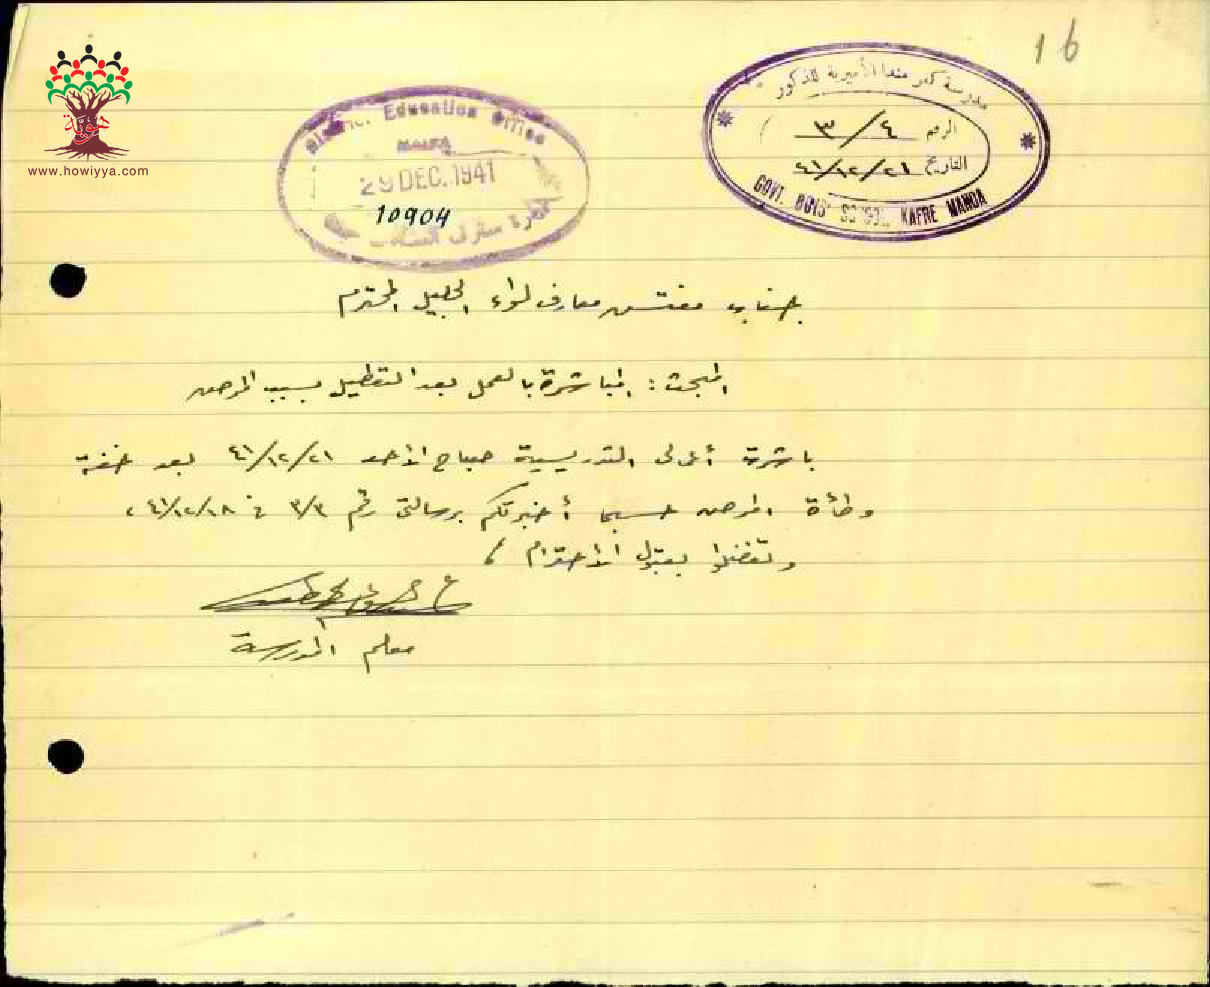 16
مدرسة كفر مندا الأميرية للذكور
الرقم ٣/٤
التاريخ ٤١/١٢/٢١
GOVT. BOYS' KAFRE MANDA
District Education Office
HAIFA
29 DEC. 1941
10904
هوية
www.howiyya.com
جناب مفتش معارف لواء الجليل المحترم
المبحث: المباشرة بالعمل بعد التعطيل بسبب المرض
باشرت أعمالي التدريسية صباح الأحد ٤١/١٢/٢١ بعد خفة
وطأة المرض حسبما أخبرتكم برسالتي رقم ٣/٣ في ٤١/١٢/١٨،
وتفضلوا بقبول الاحترام،
معلم المدرسة